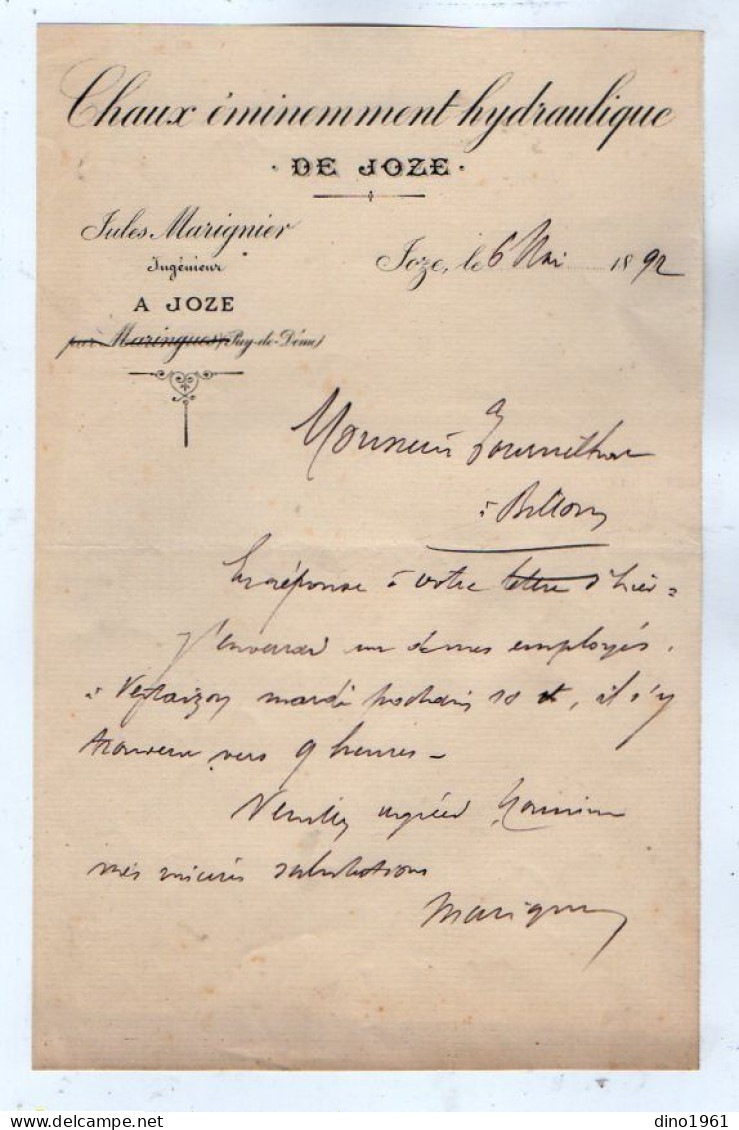 Chaux éminemment hydraulique
· DE JOZE ·
Jules Marignier
Ingénieur
A JOZE
par Maringues (Puy-de-Dôme)
Joze, le 6 Mai 1892
Monsieur
à Billom
En réponse à votre lettre d'hier
j'enverrai un de mes employés
à Vertaizon mardi prochain 10 ct, il s'y
trouvera vers 9 heures -
Veuillez agréer Monsieur
mes sincères salutations
Marignier
dino1961